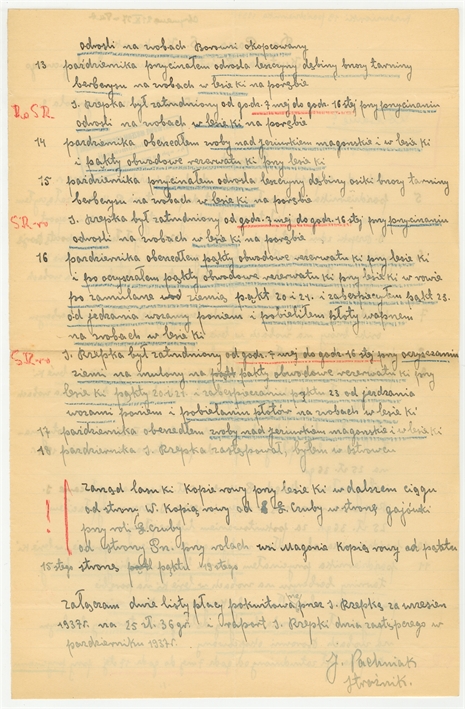 odrośli na zrobach Borsuki okopcowany
13 października przycinałem odrosla leszczyny dębiny brozy tarniny
berberysu na zrobach w lesie ki na porębie
RoSR J. Rzepka był zatrudniony od godz. 7 mej do godz. 16 stej przy przycinaniu
odrośli na zrobach w lesie ki na porębie
14 października obeszedłem zroby nad jeziurkiem magonskie i w lesie ki
i pąkty obwodowe rezerwatu ki przy lesie ki
15 października przycinałem odrosla leszczyny dębiny osiki brozy tarniny
berberysu na zrobach w lesie ki na porębie
SR ro J. Rzepka był zatrudniony od godz. 7 mej do godz. 16 stej przy przycinaniu
odrośli na zrobach w lesie ki na porębie
16 października obeszedłem pąkty obwodowe rezerwatu ki przy lesie ki
i po oczyszałem pąkty obwodowe rezerwatu ki przy lesie ki w rowie
po zamulane wod ziemią pąkt 20 i 21. i zabespieczyłem pąkt 23.
od jeżdzania wozamy poniem i pobieliłem płoty wapnem
na zrobach w lesie ki
SR ro J. Rzepka był zatrudniony od godz. 7 mej do godz. 16 stej przy oczyszczaniu
ziemi na mulony na pąkty obwodowe rezerwatu ki przy
lesie ki pąkty 20 i 21 i zabespieczeniu pąktu 23 od jeżdzania
wozami poniem i pobielaniu płotów na zrobach w lesie ki
17 października obeszedłem zroby nad jeziurkiem magonskie i w lesie ki
18 października J. Rzepka zastępował, byłem w Ostrowcu
Zarząd lasu ki Kopią rowy przy lesie ki w dalszem ciągu
od strony W. Kopią rowy od B. Czuby w stronę gajówki
! przy roli B. Czuby
od strony Pn. przy rolach wsi Magonie Kopią rowy od pąktu
15 stego stronę pąktu 19 stego
Załączam dwie listy płacy pokwitowane przez J. Rzepkę za wresien
1937 r. na 25 zł. 36 gr. i raport J. Rzepki dnia zastępczego w
październiku 1937 r.
J. Pachniak
strażnik.